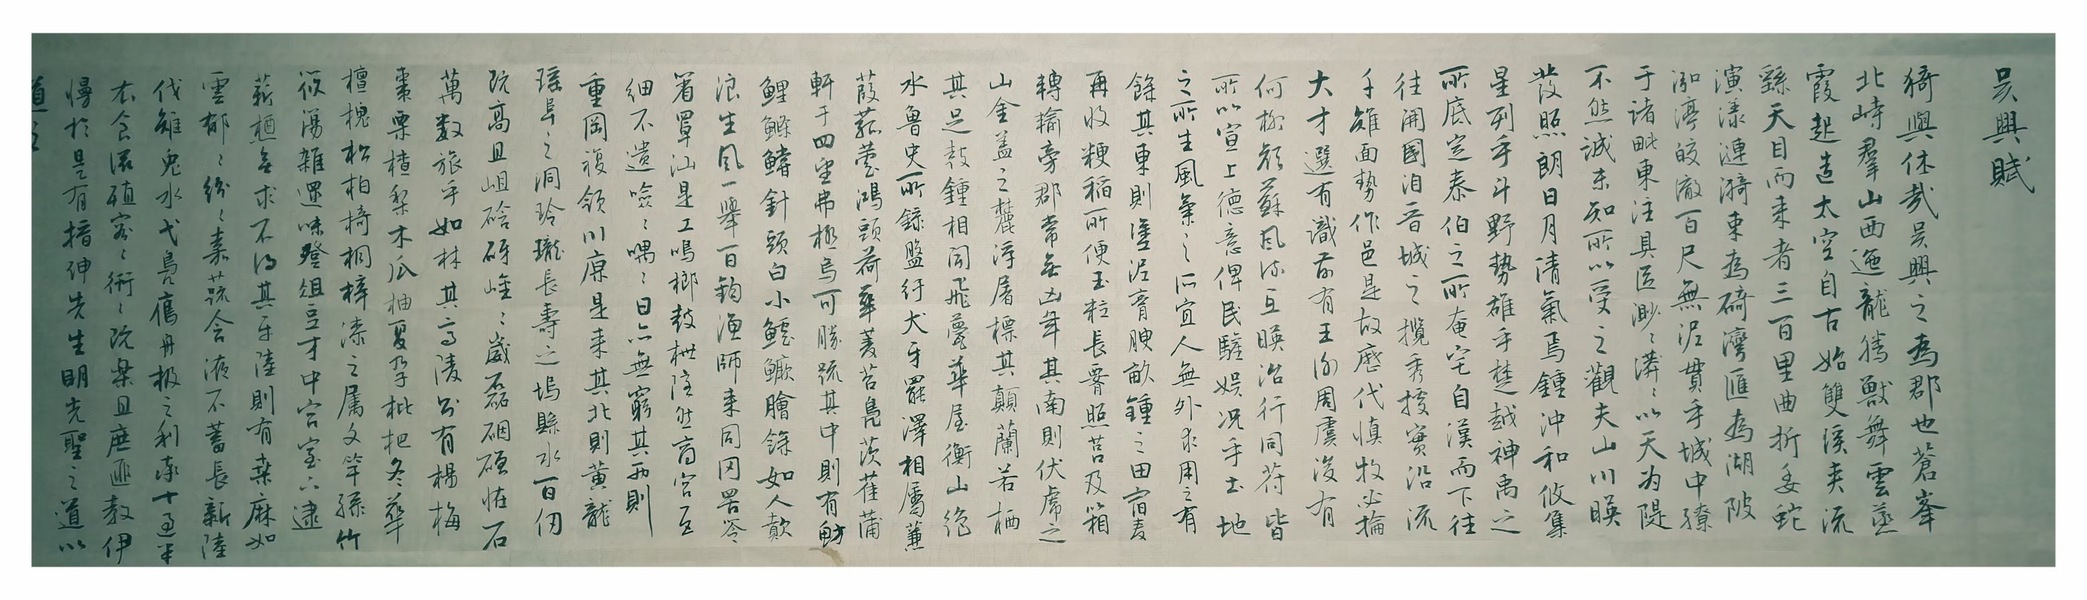 吳興賦
猗與休哉吳興之為郡也蒼峯
北峙羣山西迤龍騰獸舞雲蒸
霞起造太空自古始雙溪夾流
繇天目而來者三百里曲折委蛇
演漾漣漪東為碕灣匯為湖陂
泓渟皎澈百尺無泥貫乎城中繚
于諸毗東注具區渺〻漭〻以天为隄
不然誠未知所以受之觀夫山川映
發照朗日月清氣焉鍾沖和攸集
星列乎斗野勢雄乎楚越神禹之
所底定泰伯之所奄宅自漢而下往
往開國洎晉城之攬秀撷實沿流
千雉面勢作邑是故歷代慎牧必掄
大才選有識前有王謝周虞後有
何柳顏蘇風流互映治行同符皆
所以宣上德意俾民驩娛況乎土地
之所生風氣之所宜人無外求用之有
餘其東則塗泥膏腴畝鍾之田宿麦
再收粳稻所便玉粒長腰照筥及箱
轉輸旁郡常無凶年其南則伏虎之
山金蓋之麓浮屠標其顛蘭若栖
其足鼓鍾相聞飛甍華屋衡山絶
水魯史所錄盤紆犬牙羅澤相屬蒹
葭菰蘆鴻頭荷華菱苕鳧茨萑蒲
軒于四望弗極烏可勝疏其中則有魴
鯉鰷鱨針頭白小鱸鱖膾餘如人歕
浪生風一舉百鈞漁師來同罔罟笭
箵罩汕是工鳴榔鼓枻隱然商宮巨
細不遺噞〻喁〻日六無窮其西則
重岡複領川原是來其北則黄龍
瑶阜之洞玲瓏長壽之塢縣水百仞
既高且岨硞砑崆〻崴磊硱磳恠石
萬數旅乎如林其高陵則有楊梅
棗栗楂梨木瓜柚夏孕枇杷冬華
檀槐松柏椅桐梓漆之属文竿緜竹
筱簜雜遝味登俎豆才中宫室六逮
薪槱無求不得其平陸則有桑麻如
雲郁〻紛〻嘉蔬含液不蓄長新陸
伐雉兔水弋鳧鴈舟檝之利率十過半
衣食滋殖容〻衎〻既樂且庶匪教伊
慢於是有搢紳先生明先聖之道以